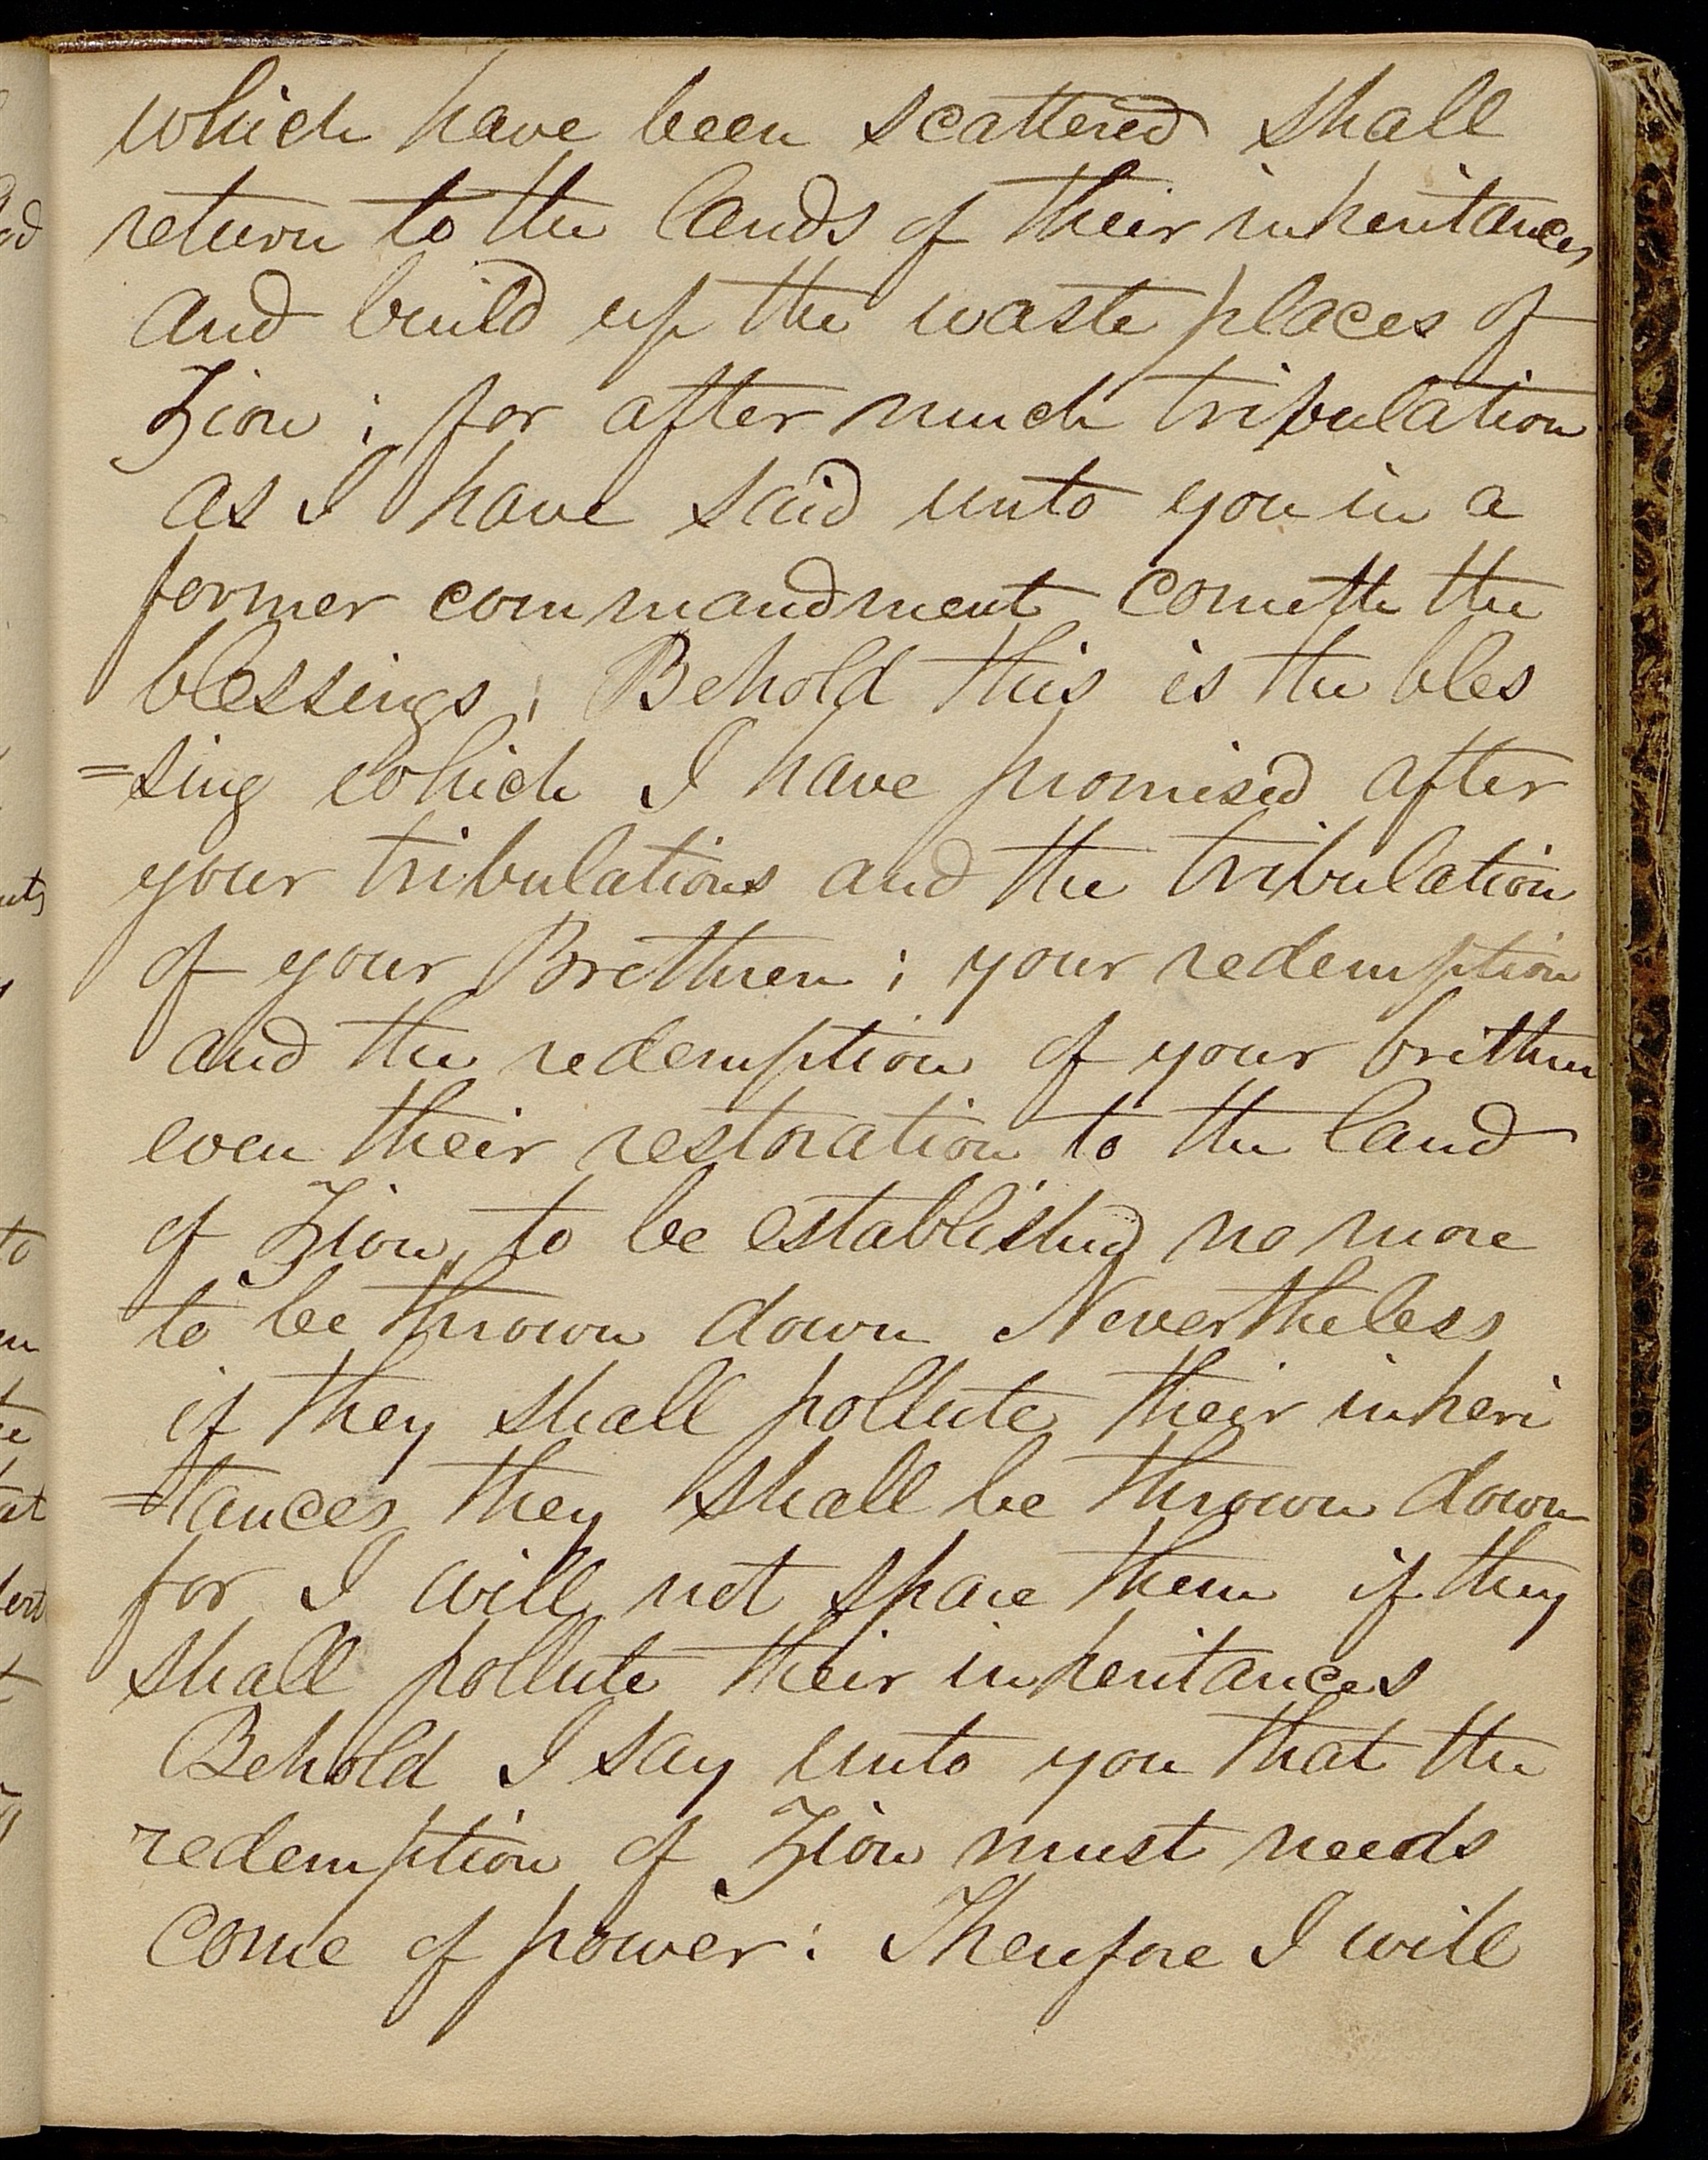 which have been scattered shall
return to the lands of their inheritances
and build up the waste places of
Zion ; for after much tribulation
as I have said unto you in a
former commandment cometh the
blessings ; Behold this is the bles
=sing which I have promised after
your tribulations and the tribulation
of your Brethren ; your redemption
and the redemption of your brethren
even their restoration to the land
of Zion, to be established no more
to be thrown down Nevertheless
if they shall pollute their inheri
=tances they shall be thrown down
for I will not spare them if they
shall pollute their inheritances
Behold I say unto you that the
redemption of Zion must needs
come of power : Therefore I will